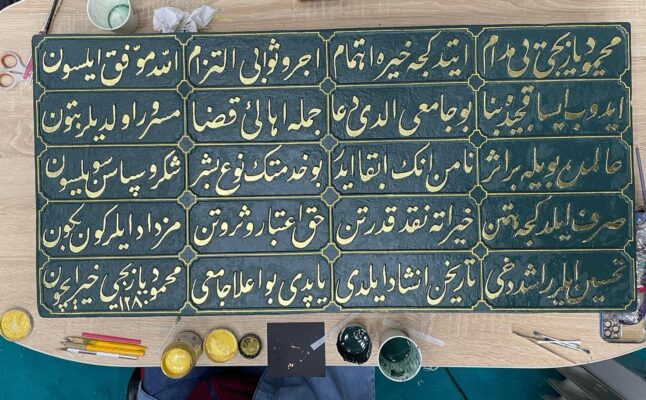 محمود یازیجی بی مدام ایتدکجه خیره اهتمام اجر و ثوابی التزام الله موفق ایلسون
ایدوب ایسابقجیده بنا بو جامعی الدی دعا جمله اهالئ قضا مسرور اولدیلر بتون
عالمده بویله بر اثر نامن انک ابقا ایدر بو خدمتک نوع بشر شکر و سپاسن سویلسون
صرف ایلدکجه همتن خیراته نقد قدرتن حق اعتبار و ثروتن مزداد ایلر کون بکون
تحسین ایلر راشد دخی تاریخن انشاد ایلدی یاپدی بو اعلا جامعی محمود یازیجی خیر ایچون
١٢٨٠